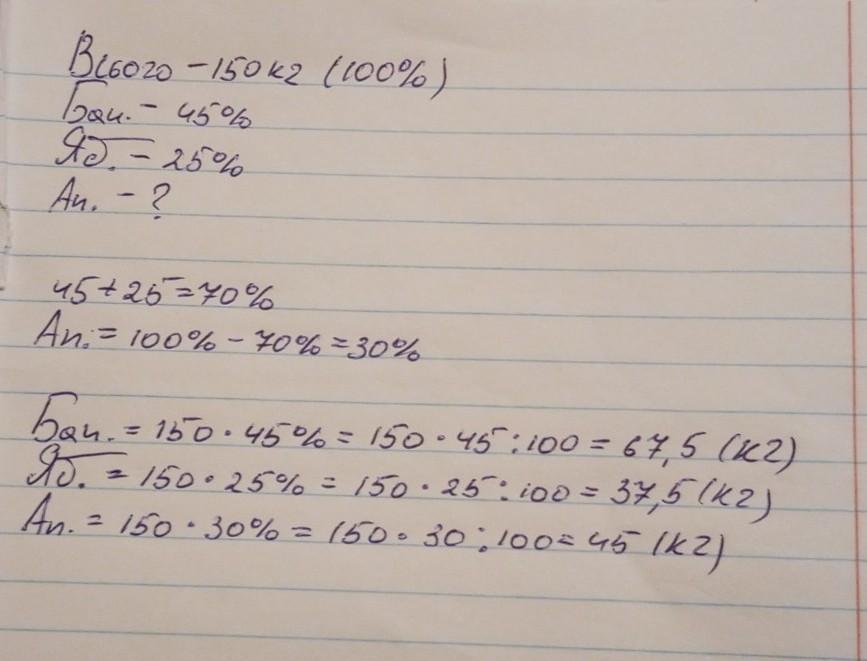 Всього – 150 кг (100%)
Бан. – 45%
Яб. – 25%
Ап. – ?
45+25=70%
Ап. = 100% – 70% = 30%
Бан. = 150 · 45% = 150 · 45 : 100 = 67,5 (кг)
Яб. = 150 · 25% = 150 · 25 : 100 = 37,5 (кг)
Ап. = 150 · 30% = 150 · 30 : 100 = 45 (кг)